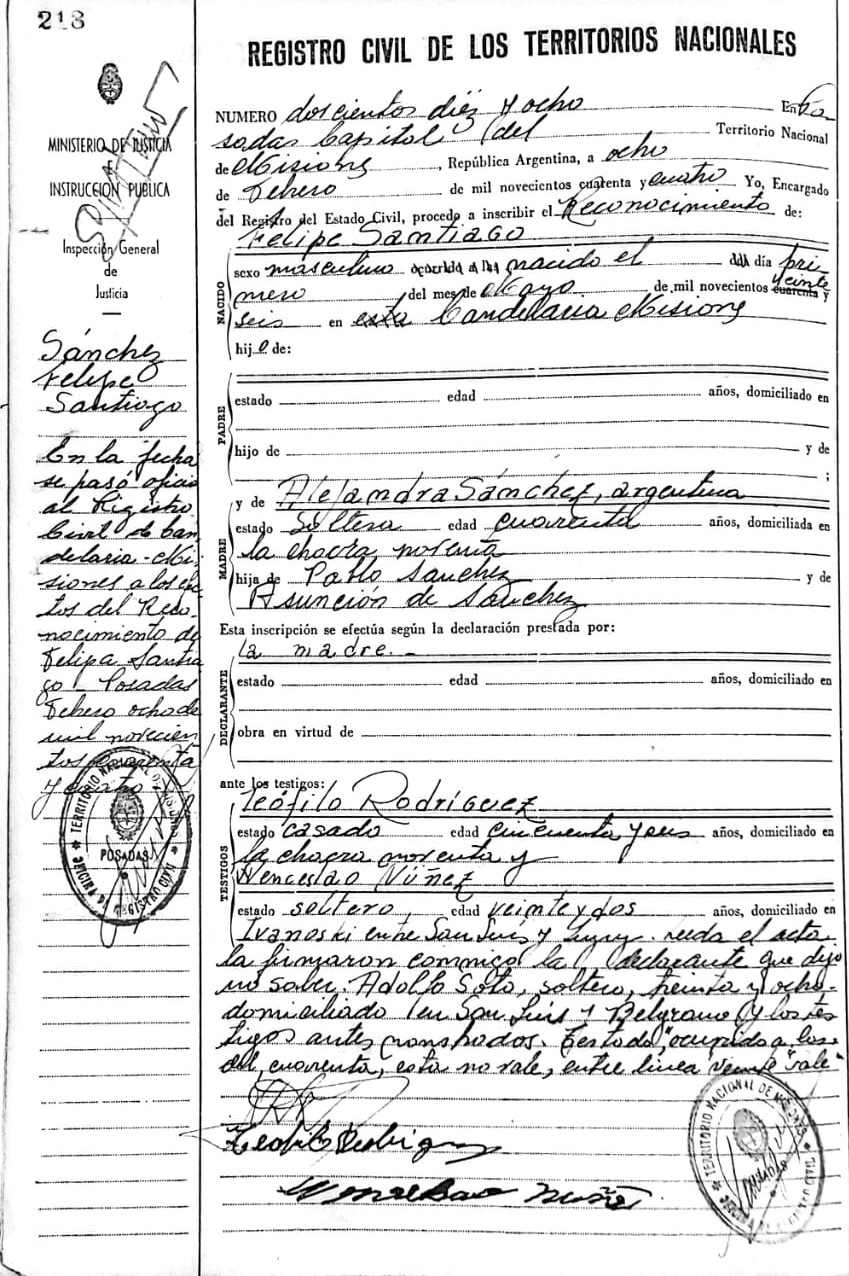 218
MINISTERIO DE JUSTICIA
E
INSTRUCCION PUBLICA
Inspección General
de
Justicia
Sánchez
Felipe
Santiago
En la fecha
se pasó oficio
al Registro
Civil de Can
delaria - Mi
siones a los efec
tos del Reco
nocimiento de
Felipe Santia
go - Posadas
Febrero ocho de
mil novecien
tos cuarenta
y cuatro
TERRITORIO NACIONAL DE MISIONES
POSADAS
OFICINA DE REGISTRO CIVIL
REGISTRO CIVIL DE LOS TERRITORIOS NACIONALES
NUMERO doscientos diez y ocho En Po
sadas Capital del Territorio Nacional
de Misiones, República Argentina, a ocho
de Febrero de mil novecientos cuarenta y cuatro Yo, Encargado
del Registro del Estado Civil, procedo a inscribir el Reconocimiento de:
Felipe Santiago
NACIDO
sexo masculino ocurrido a las nacido el del día pri
mero del mes de Mayo de mil novecientos cuarenta veinte y
seis en esta Candelaria Misiones
hijo de:
PADRE
estado edad años, domiciliado en
hijo de y de
;
MADRE
y de Alejandra Sánchez, argentina
estado Soltera edad cuarenta años, domiciliada en
la chacra noventa
hija de Pablo Sanchez y de
Asunción de Sanchez
Esta inscripción se efectúa según la declaración prestada por:
la madre.-
DECLARANTE
estado edad años, domiciliado en
obra en virtud de
ante los testigos:
TESTIGOS
Teófilo Rodríguez
estado casado edad cincuenta y seis años, domiciliado en
la chacra noventa y
Wenceslao Núñez
estado soltero edad veinte y dos años, domiciliado en
Ivanoski entre San Luis y leida el acta
la firmaron conmigo la declarante que dijo
no saber. Adolfo Soto, soltero, treinta y ocho
domiciliado en San Luis y Belgrano y los tes
tigos antes nombrados. Testado, "ocurrido a las
del, cuarenta, esta no vale, entre línea veinte "vale"
TERRITORIO NACIONAL DE MISIONES
OFICINA DE REGISTRO CIVIL